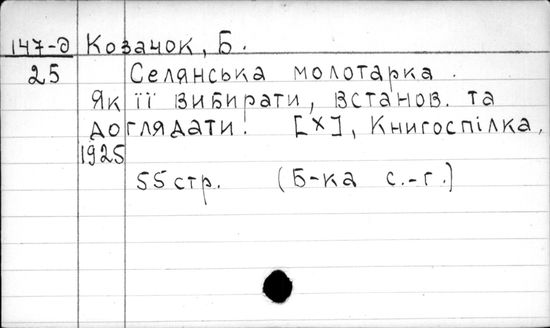 147-д Козачок, Б.
25 Селянська молотарка.
Як її вибирати, встанов. та
доглядати. [Х], Книгоспілка,
1925
55 стр. (Б-ка с.-г.)